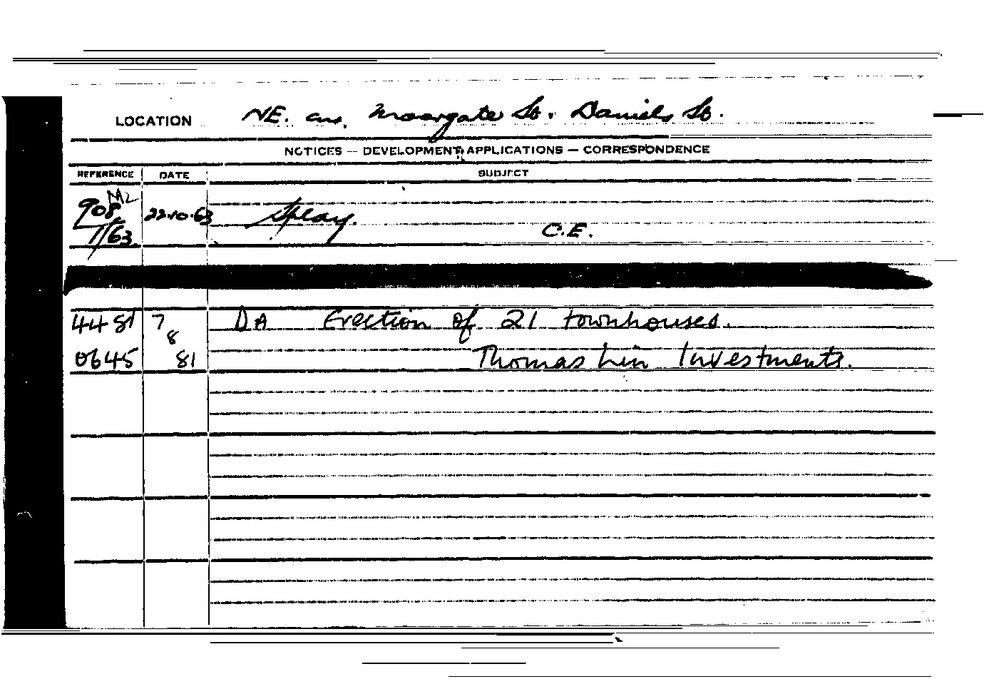 LOCATION NE. cnr. Moorgate St. Daniels St.
NOTICES — DEVELOPMENT APPLICATIONS — CORRESPONDENCE
REFERENCE DATE SUBJECT
908 M2 22.10.63 Splay.
1/63 C.E.
4481 7 DA Erection of 21 townhouses.
8
0645 81 Thomas Lin Investments.